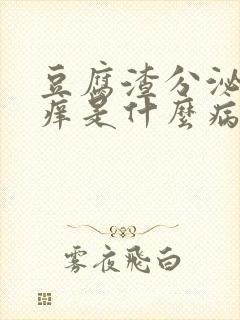 豆腐渣分泌
痒是什麼病
雾夜飛白